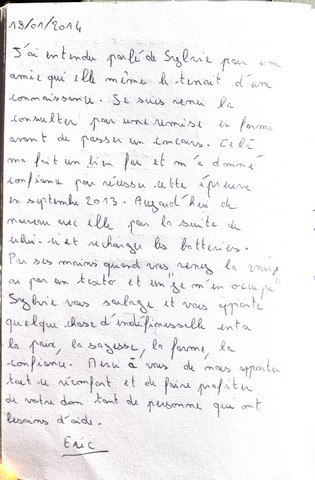 13/01/2014
J'ai entendu parlé de Sylvie par une
amie qui elle même le tenait d'une
connaissance. Je suis venu la
consulter par une remise en forme
avant de passer un concours. Celà
ma fait un bien fou et m'a donné
confiance par réussir cette épreuve
en septembre 2013. Aujourd'hui de
nouveau avec elle par la suite de
celui-ci et recharger les batteries.
Par ses mains quand vous venez la voir
ou par un texto et un "je m'en occupe"
Sylvie vous soulage et vous apporte
quelque chose d'indéfinissable entre
la paix, la sagesse, la forme, la
confiance. Merci à vous de nous apporter
tout ce réconfort et de faire profiter
de votre don tant de personne qui ont
besoins d'aide.
Eric